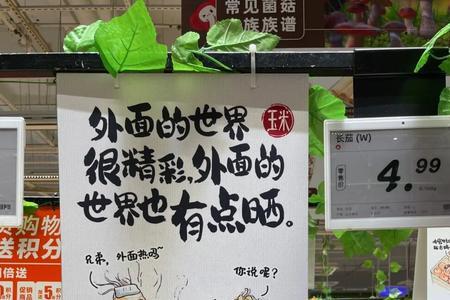 常见菌菇
族族谱
外面的世界
玉米
很精彩,外面的
世界也有点晒。
兄弟，外面热吗~
你说呢?
长茄 (W)
零售价
4.99
购物
送积分
倍送